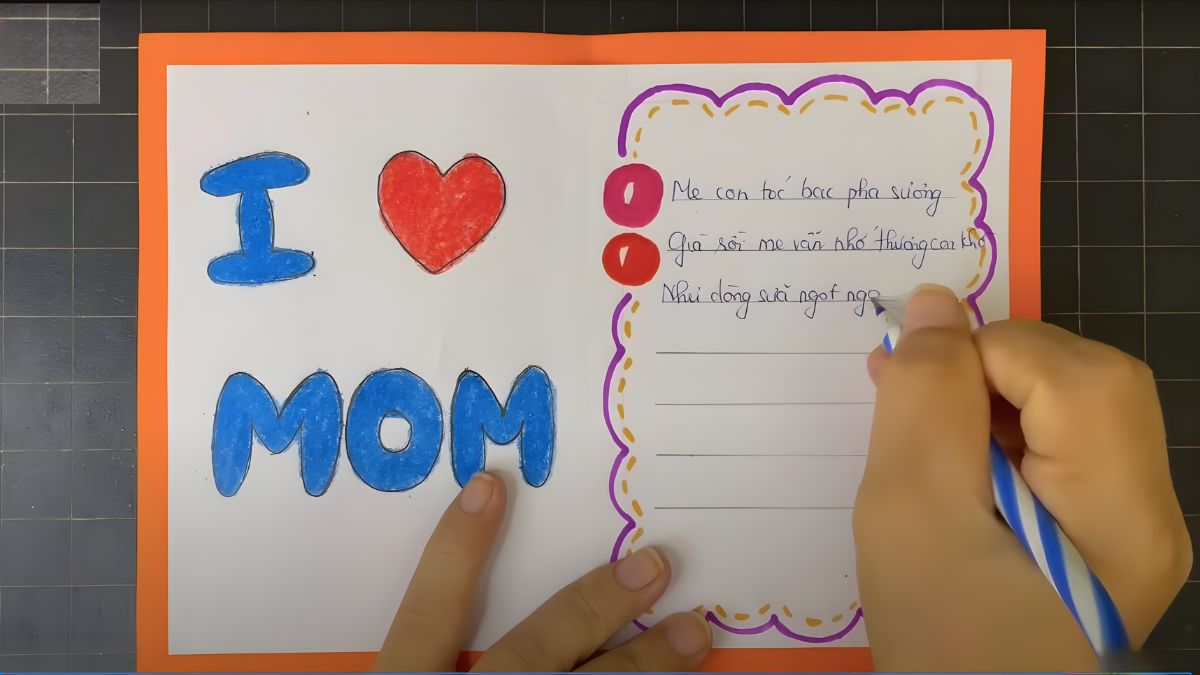 I
MOM
Mẹ con tóc bạc pha sương
Già rồi mẹ vẫn nhớ thương con khờ
Như dòng sữa ngọt